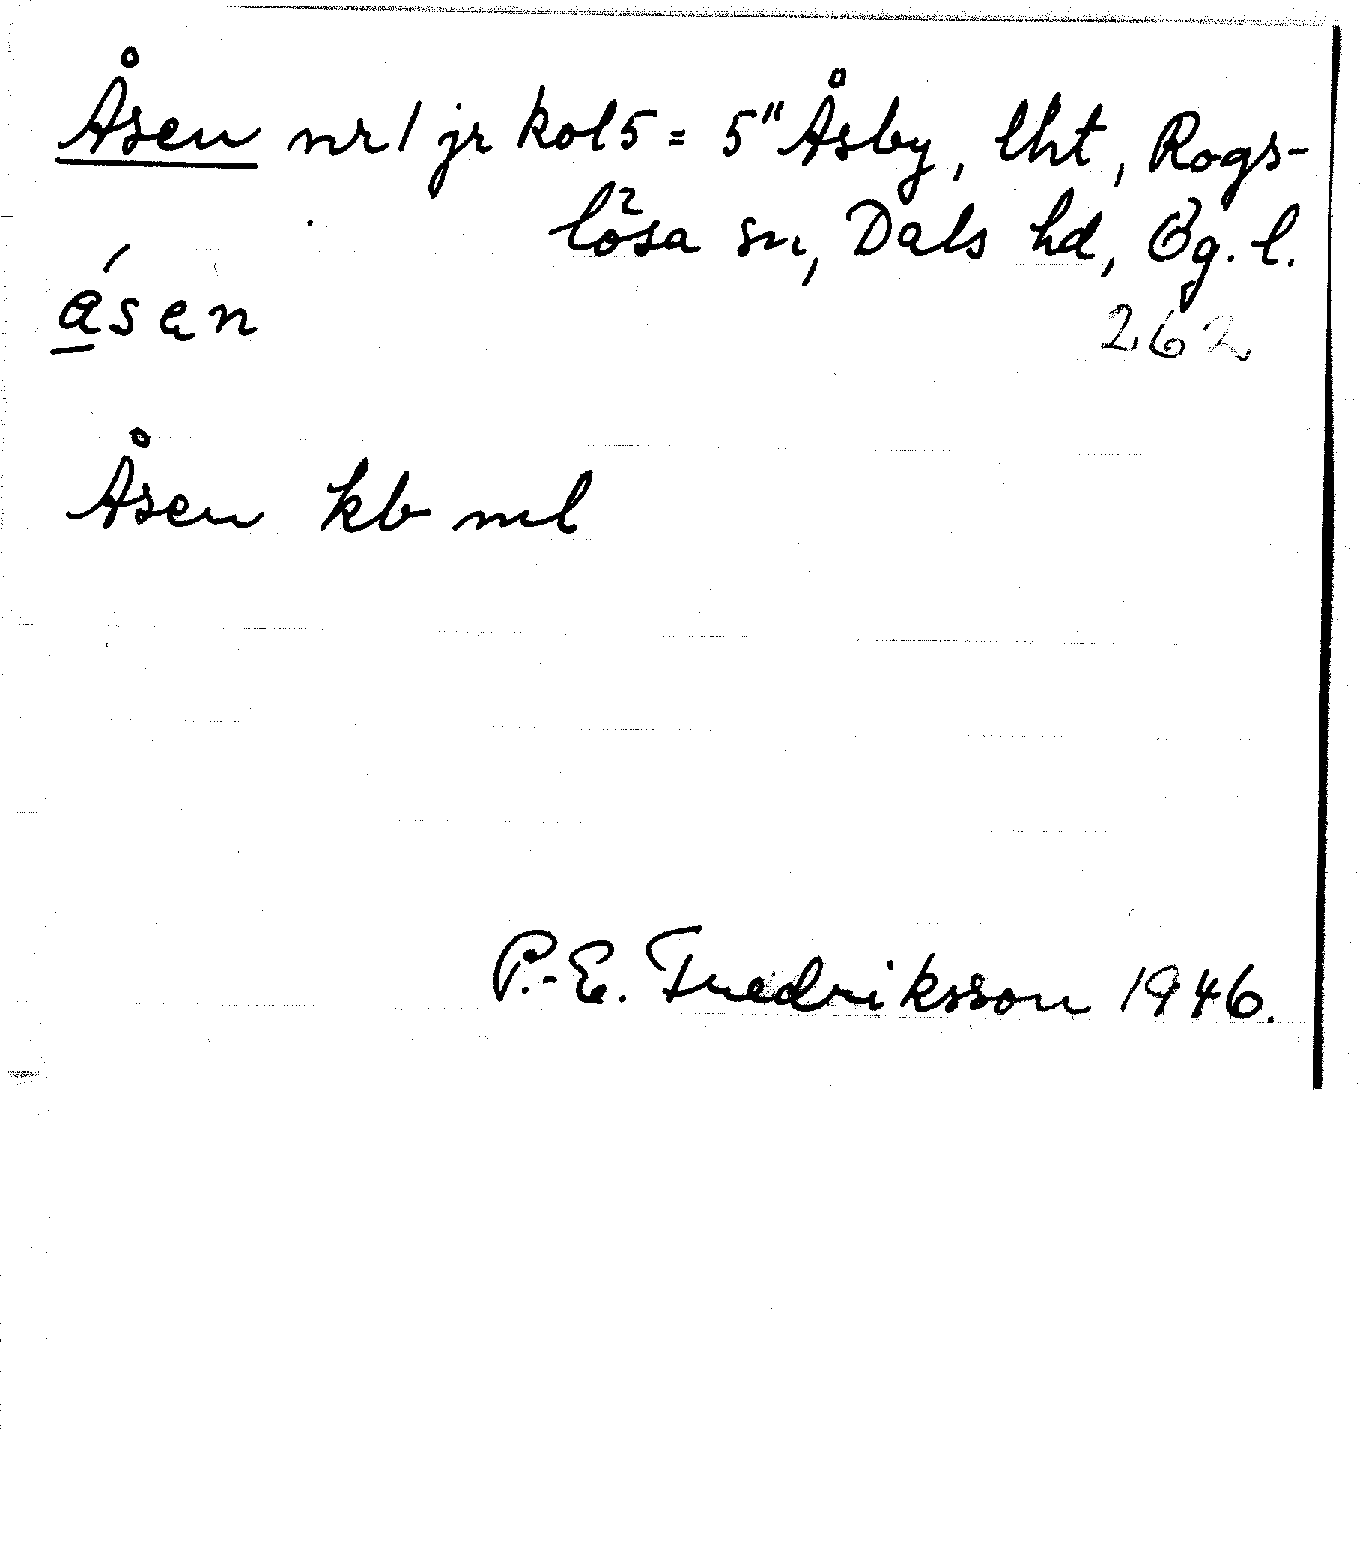 Åsen nr 1 jr kol 5 = 5" Åsby, lht, Rogs-
lösa sn, Dals hd, Ög. l.
ásen
262
Åsen kb ml
P.-E. Fredriksson 1946.